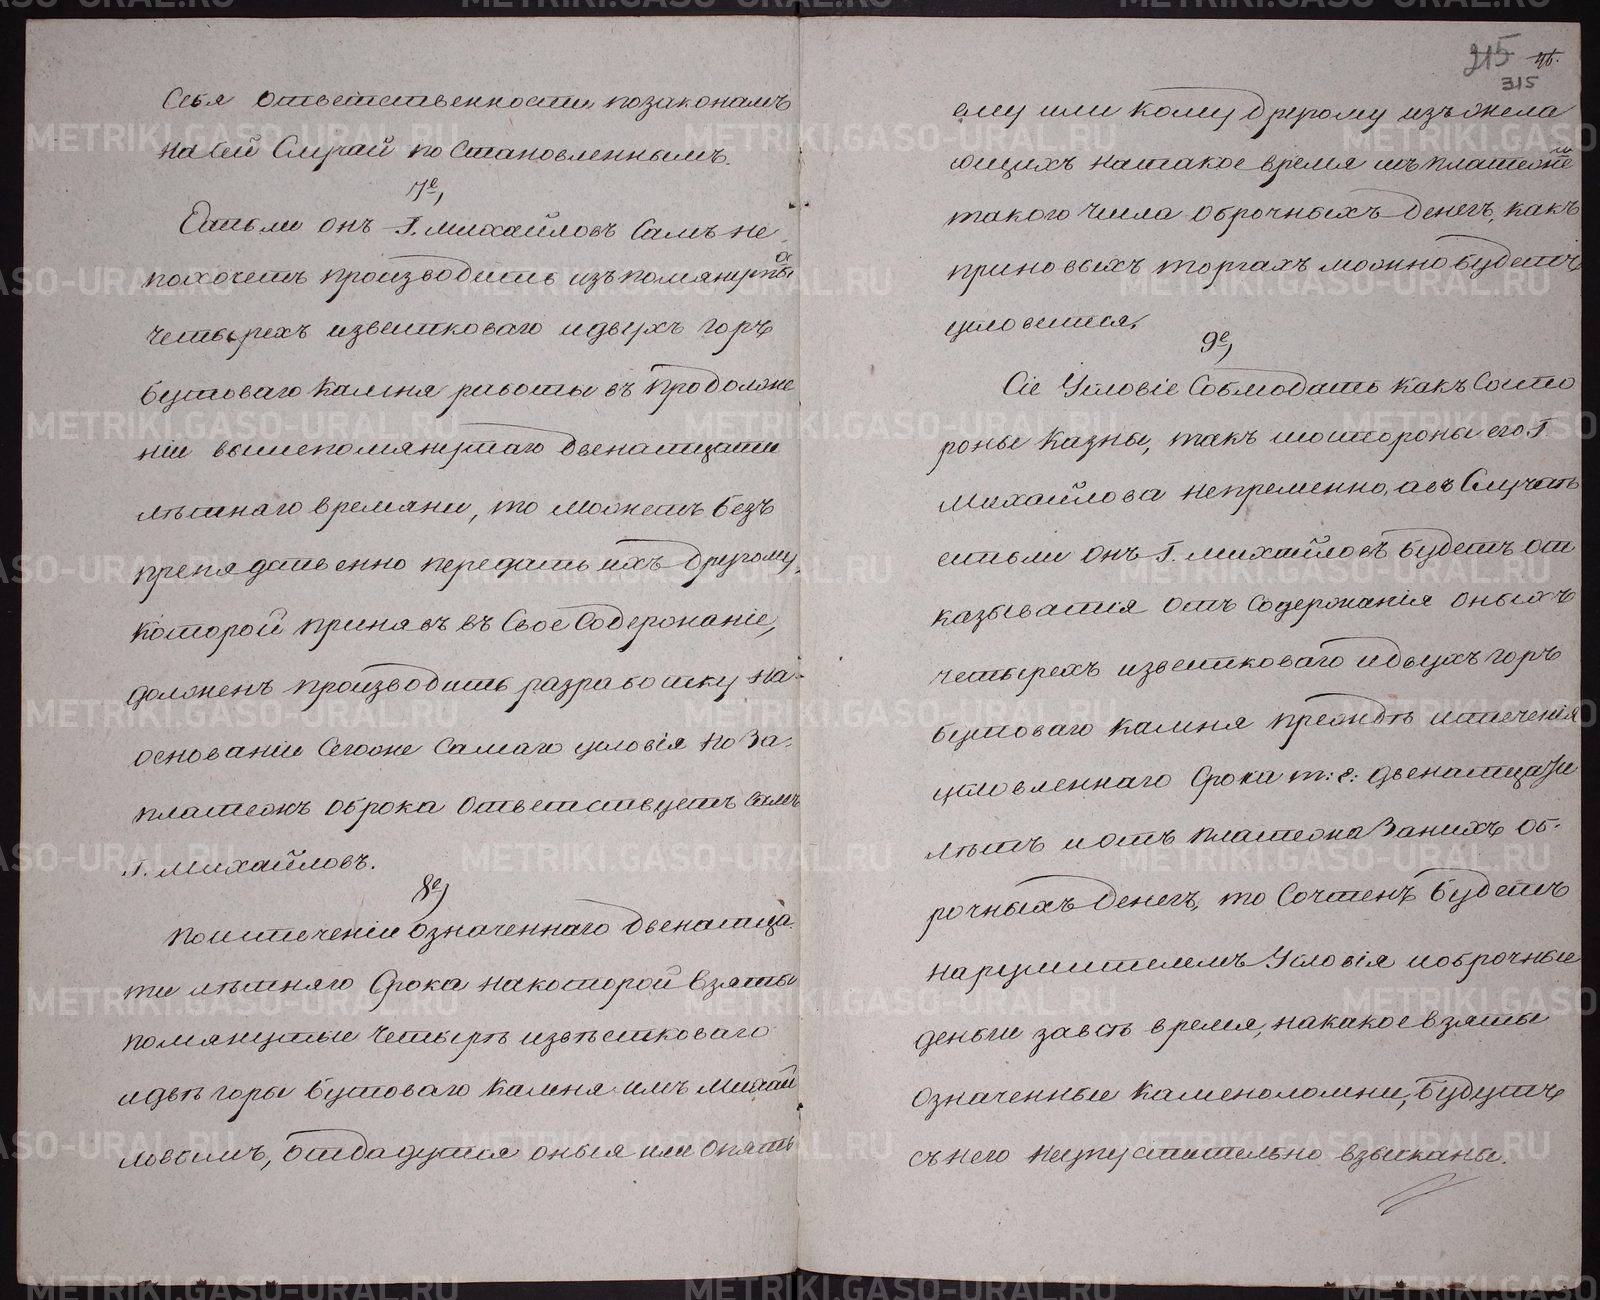 Себя ответственности по законамъ
на сей Случай постановленнымъ.
7е,
Естьли онъ Г. Михайловъ Самъ не
похочетъ производить изъ помянутыхъ
четырехъ известковаго и двухъ горъ
бутоваго Камня работы въ продолже
нiи вышепомянутаго двенатцати
лѣтнаго времяни, то можетъ безъ
препядственно передать ихъ другому,
которой принявъ въ Свое Содержанiе,
долженъ производить разработку на
основанiи Сегоже Самаго условiя но За
платежъ оброка ответствуетъ Самъ
Г. Михайловъ.
8е,
По истеченiи означеннаго двенатца
ти лѣтняго Срока на которой взяты
помянутые Четырѣ известковаго
и двѣ горы бутоваго Камня имъ Михай
ловымъ, отдадутся оныя или опять
215
315
ему или Кому другому изъ жела
ющихъ на такое время и въ платеже
такого числа оброчныхъ денегъ, какъ
при новыхъ торгахъ можно будетъ
условится.
9е,
Сiе Условiе Соблюдать Какъ Состо
роны Казны, такъ и со стороны его Г.
Михайлова непременно, а въ Случаѣ
естьли онъ Г. Михайловъ будетъ от
казыватся отъ Содержанiя оныхъ
четырехъ известковаго и двухъ горъ
бутоваго Камня преждѣ истеченiя
условленнаго Срока т: е: двенатцати
лѣтъ и отъ платежа За нихъ об-
рочныхъ денегъ, то Сочтенъ будетъ
нарушителемъ Условiя и оброчные
деньги за всѣ время, на какое взяты
означенные Каменоломни, будутъ
съ него неупустительно взысканы.
METRIKI.GASO-URAL.RU